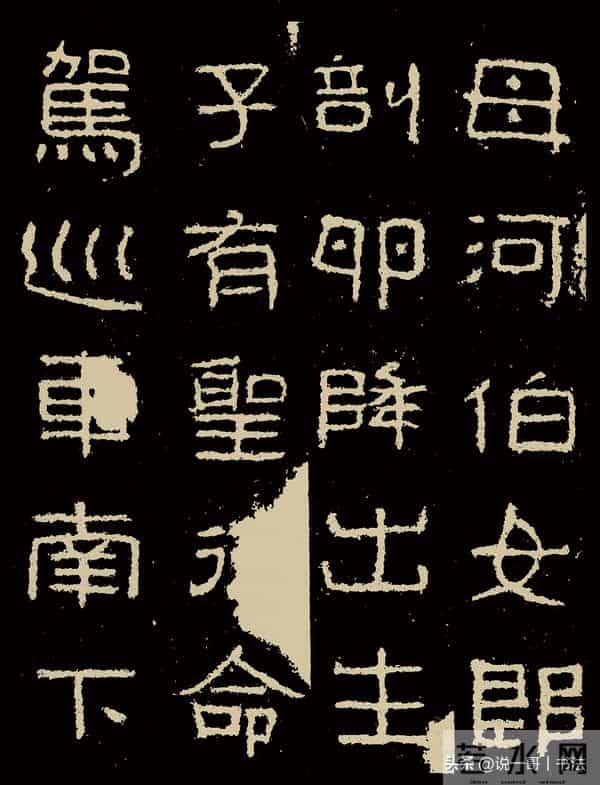 母河伯女郎
剖卵降出生
子有聖命
駕巡車南下
若水网
头条 @说一哥丨书法